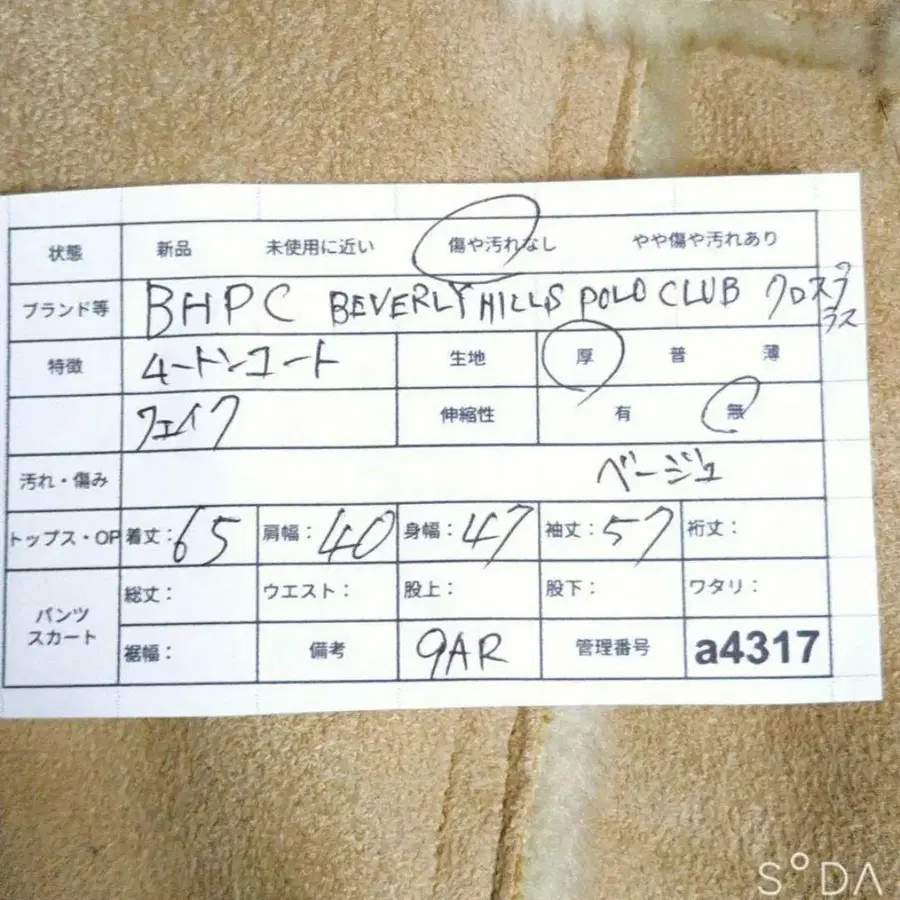 状態 新品 未使用に近い 傷や汚れなし やや傷や汚れあり
ブランド等 BHPC BEVERLY HILLS POLO CLUB クロスプラス
特徴 ムートンコート 生地 厚 普 薄
フェイク 伸縮性 有 無
汚れ・傷み ベージュ
トップス・OP 着丈:65 肩幅:40 身幅:47 袖丈:57 裄丈:
パンツ スカート 総丈: ウエスト: 股上: 股下: ワタリ:
裾幅: 備考 9AR 管理番号 a4317
SODA